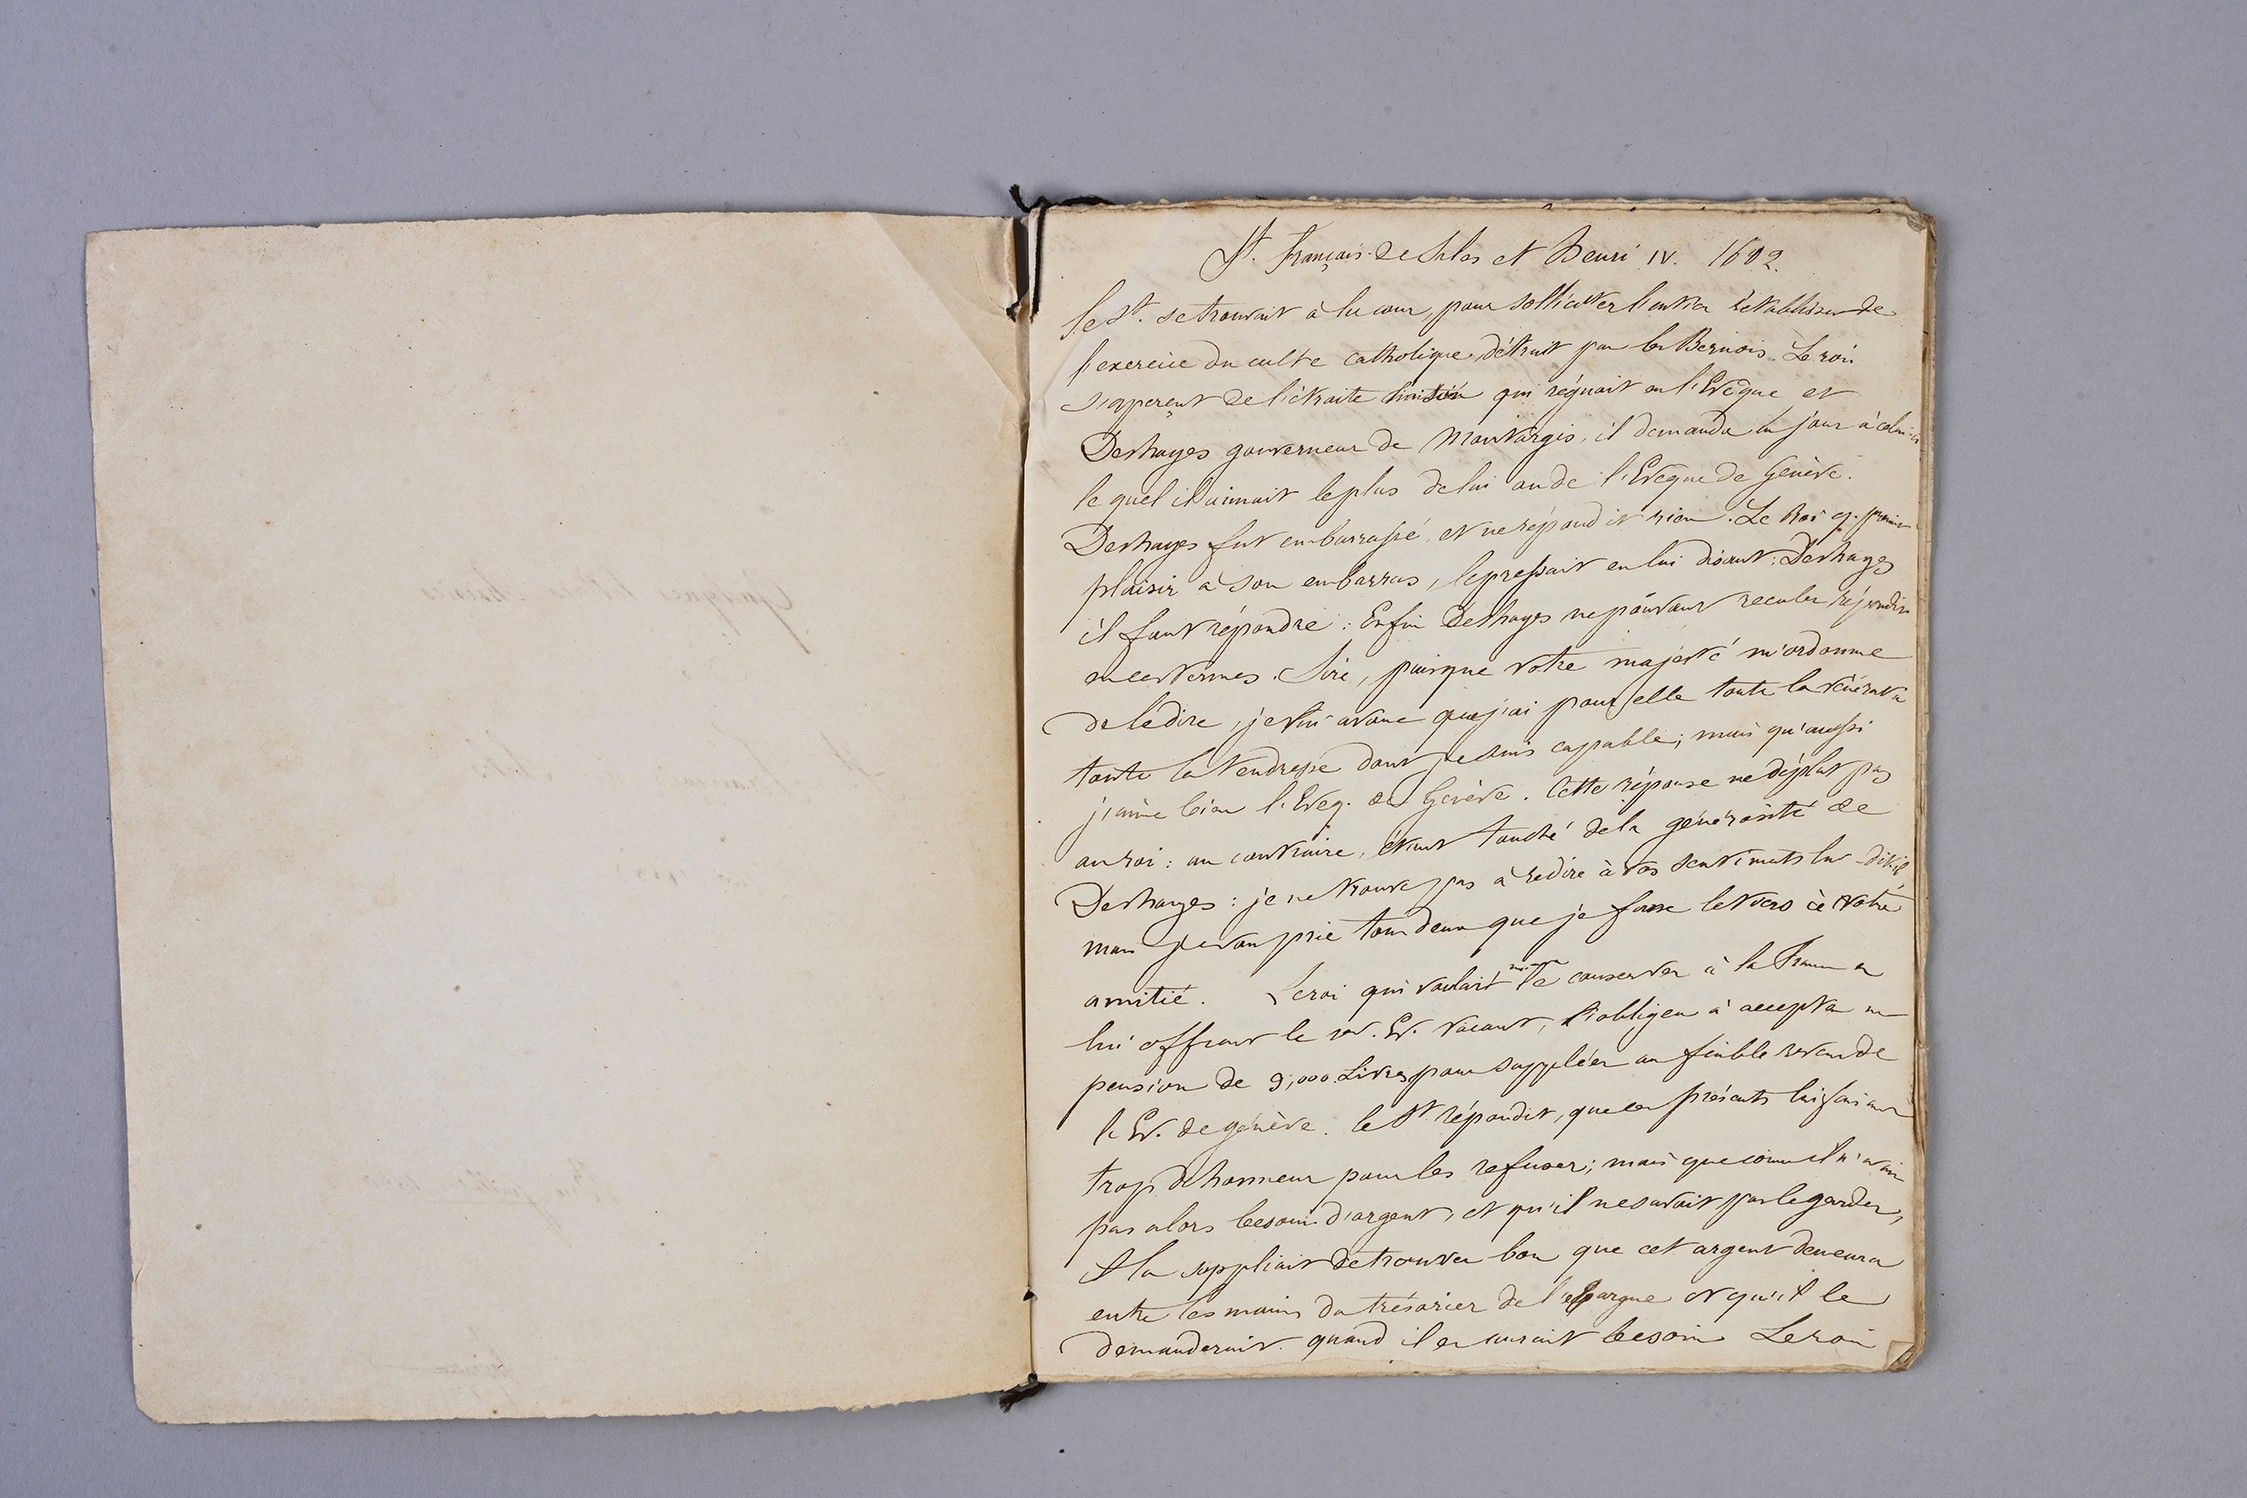 St. François de Sales et Henri IV. 1602.
le St. se trouvait à la cour, pour solliciter l'entier rétablisser de
l'exercice du culte catholique, détruit par les Bernois. Le roi
s'apperçut de l'étroite liaison qui régnait en l'Evêque et
Deshayes gouverneur de Montargis, il demanda un jour à celui-ci
le quel il aimait le plus de lui ou de l'Evêque de Genève.
Deshayes fut embarrassé, et ne répondit rien. Le Roi q. prenait
plaisir à son embarras, le pressait en lui disant: Deshayes
il faut répondre: Enfin Deshayes ne pouvant reculer répondit
en ces termes. Sire, puisque votre majesté m'ordonne
de le dire, je lui avoue que j'ai pour elle toute la vénérat.n
toute la tendresse dont je suis capable; mais qu'aussi
j'aime bien l'Evêq. de Genève. Cette réponse ne déplut pas
au roi: au contraire, étant touché de la générosité de
Deshayes: je ne trouve pas à redire à vos sentiments lui dit-il
mais je vous prie tous deux que je fasse le tiers à votre
amitié. Le roi qui voulait le conserver à la France en
lui offrant le 1er. Ev. vacant, l'obligea à accepter une
pension de 3,000 Livres pour suppléer au faible revenu de
l'Ev. de genève. le St. répondit, que ces présents lui faisaient
trop d'honneur pour les refuser; mais que comme il n'avait
pas alors besoin d'argent, et qu'il ne savait pas le garder,
il le suppliait de trouver bon que cet argent demeura
entre les mains du trésorier de l'epargne et qu'il le
demanderait quand il en aurait besoin Le roi